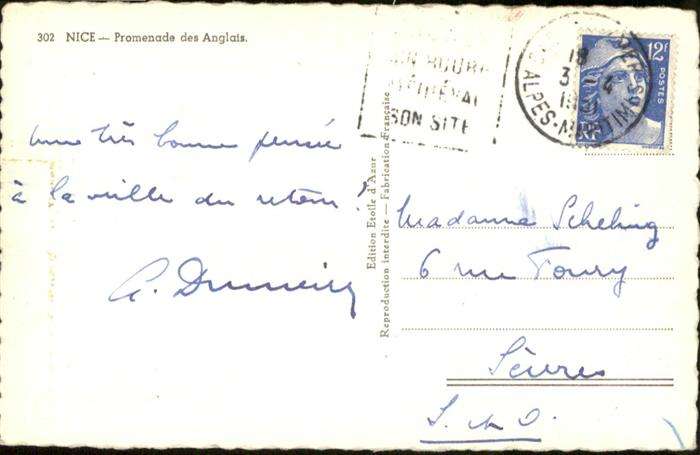 302 NICE — Promenade des Anglais.
une très bonne pensée
à la veille du retour !
BOURG
MÉDIÉVAL
SON SITE
18
ALPES-MARITIMES
12F
POSTES
Edition Etoile d'Azur
Reproduction interdite — Fabrication Française
Madame Scheling
6 rue Fourry
Sèvres
S. &. O.